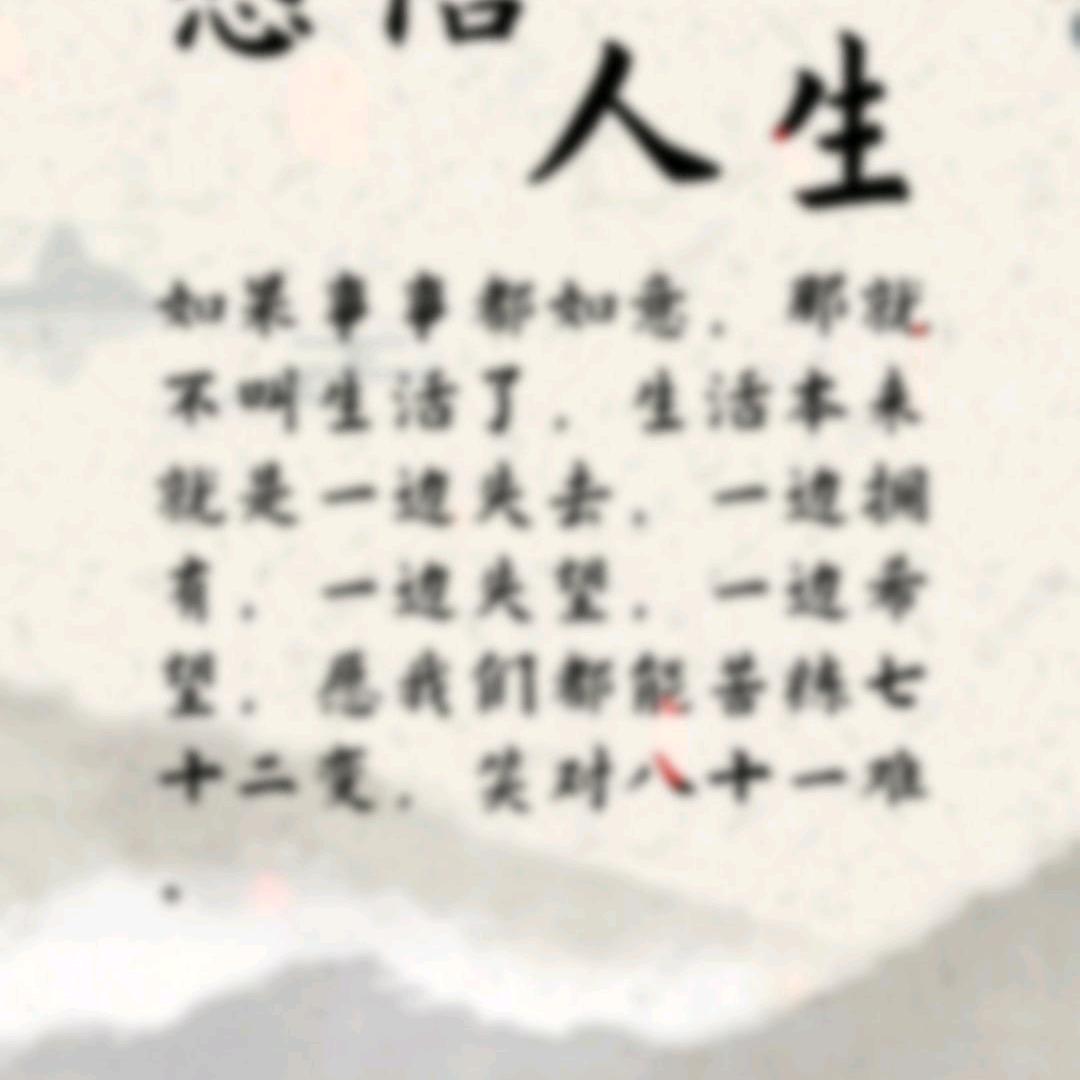 感悟
人生
如果事事都如意，那就
不叫生活了，生活本来
就是一边失去，一边拥
有，一边失望，一边希
望，愿我们都能苦练七
十二变，笑对八十一难
.